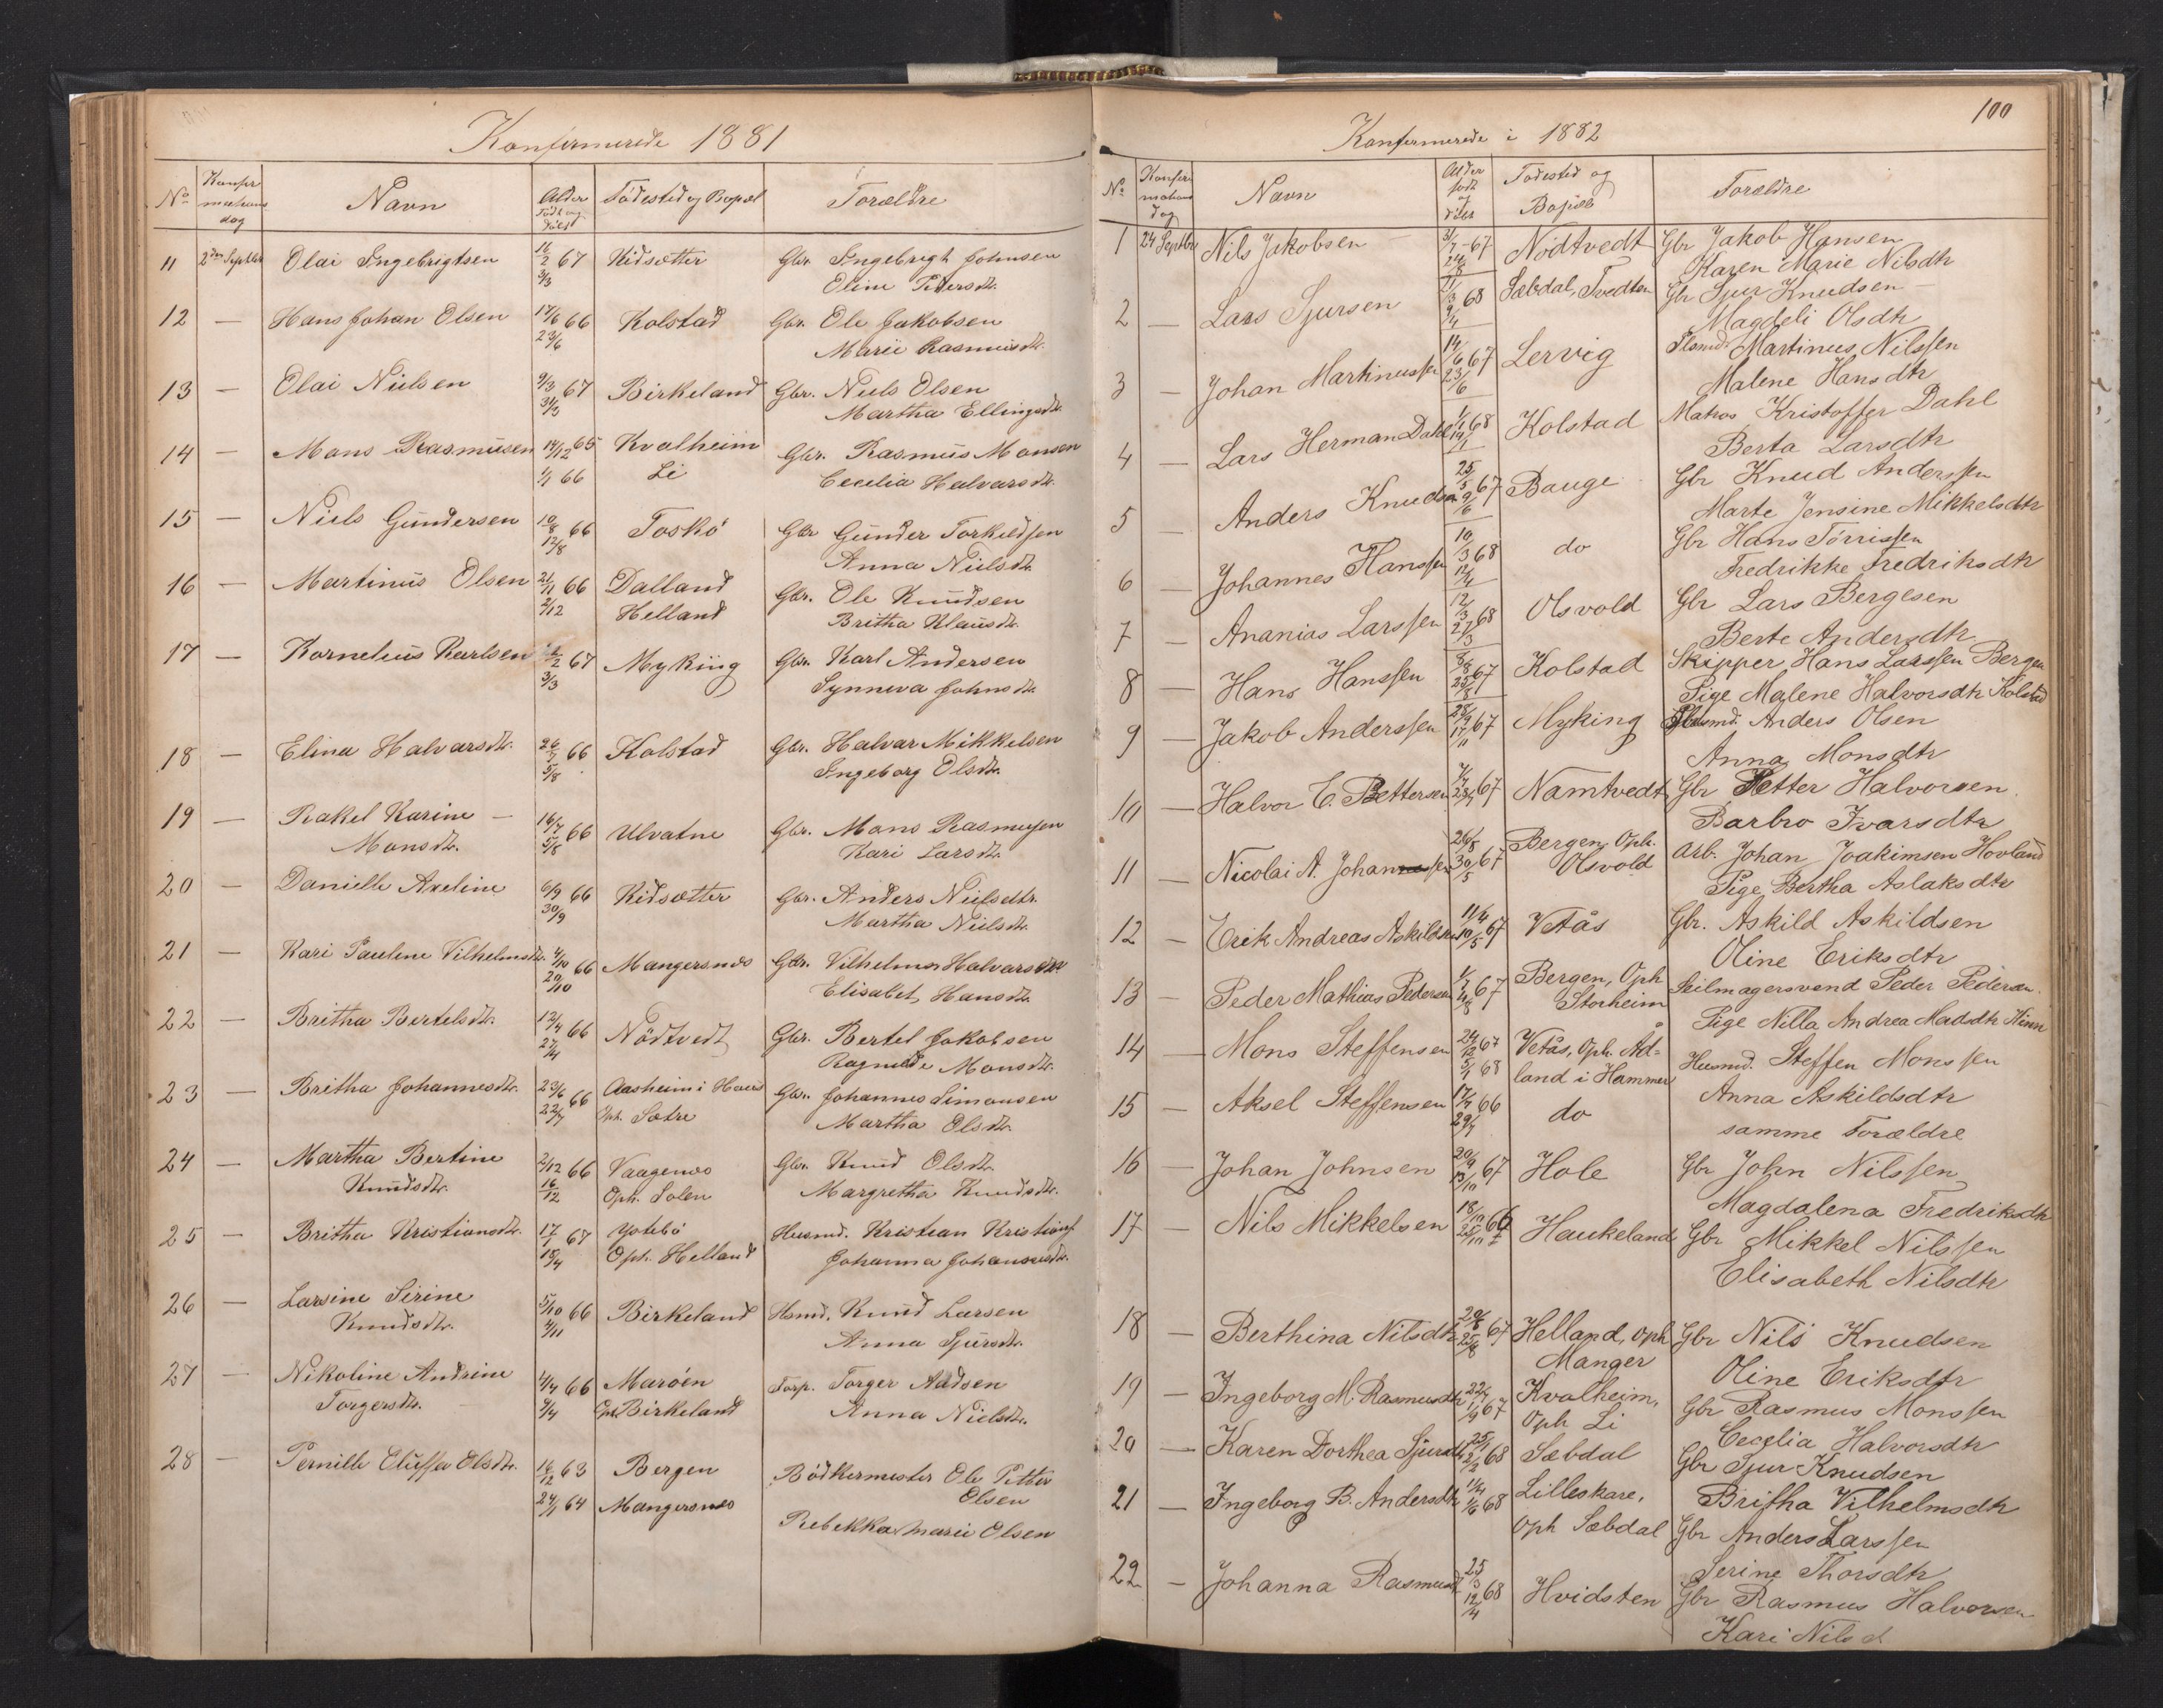 Konfirmerede 1881
No Konfirmations dag Navn Alder Født og døbt Fødested og Bopæl Forældre
11 2den Septbr Olai Ingebrigtsen 16/2 67 Kidsætter Gbr. Ingebrigt Johnsen
3/3 Eline Petersdtr.
12 — Hans Johan Olsen 17/6 66 Kolstad Gbr. Ole Jakobsen
23/6 Marie Rasmusdtr.
13 — Olai Nielsen 9/3 67 Birkeland Gbr. Niels Olsen
31/3 Martha Ellingsdtr.
14 — Mons Rasmusen 14/12 65 Kvalheim Gbr. Rasmus Monsen
1/1 66 Li Cecilia Halvarsdtr.
15 — Niels Gundersen 10/8 66 Toskö Gbr Gunder Torkildsen
12/8 Anna Nielsdtr.
16 — Martinus Olsen 21/11 66 Dalland Gbr. Ole Knudsen
2/12 Helland Britha Klausdtr.
17 — Kornelius Karlsen /2 67 Myking Gbr. Karl Andersen
3/3 Synneva Johnsdtr.
18 — Elina Halvarsdtr. 26/7 66 Kolstad Gbr. Halvar Mikkelsen
5/8 Ingeborg Olsdtr.
19 — Rakel Karine — 14/7 66 Ulvatne Gbr. Mons Rasmusen
Monsdtr. 5/8 Kari Larsdtr.
20 — Danielle Axeline 6/9 66 Kidsætter Gbr. Anders Nielsdtr.
30/9 Martha Nielsdtr.
21 — Kari Pauline Vilhelmsdtr. 4/10 66 Mangersnes Gbr. Vilhelm Halvarsen
20/10 Elisabet Hansdtr.
22 — Britha Bertelsdtr. 12/4 66 Nödtvedt Gbr. Bertel Jakobsen
27/4 Ragnilde Monsdtr.
23 — Britha Johannesdtr. 23/6 66 Aasheim i Haus Gbr. Johannes Simonsen
22/7 Oph. Sætre Martha Olsdtr.
24 — Martha Bertine 2/12 66 Vaagenes Gbr. Knud Olsdtr.
Knudsdtr. 16/12 Oph. Solen Margretha Knudsdtr.
25 — Britha Kristiansdtr. 17/1 67 Ystebö Husmd. Kristian Kristians
15/4 Oph. Helland Johanna Johannesdtr.
26 — Larsine Sirine 5/10 66 Birkeland Husmd. Knud Larsen
Knudsdtr. 4/11 Anna Sjursdtr.
27 — Nikoline Andrine 4/4 66 Maröen Torp. Torger Aadsen
Torgersdtr. 9/4 Oph. Birkeland Anna Nielsdtr.
28 — Pernille Elissa Olsdtr. 16/12 63 Bergen Bödkermester Ole Petter
24/1 64 Mangersnes Olsen
Rebekka Marie Olsen
100
Konfirmerede i 1882
No Konfirmations dag Navn Alder født og døbt Fødested og Bopæl Forældre
1 24 Septbr Nils Jakobsen 3/7 67 Nödtvedt Gbr Jakob Hansen
Karen Marie Nilsdtr
2 — Lars Sjursen /3 68 Sæbdal, Tvedten Gbr Sjur Knudsen —
9/4 Magdeli Olsdtr
3 — Johan Martinussen 14/6 67 Lervig Plsmd. Martinus Nilssen
23/6 Malene Hansdtr
4 — Lars Herman Dahl 1/1 68 Kolstad Matros Kristoffer Dahl
Berta Larsdtr
5 — Anders Knudsen 25/5 67 Bauge Gbr Knud Anderssen
9/6 Marte Jensine Mikkelsdtr
6 — Johannes Hanssen 10/3 68 do Gbr Hans Törrissen
12/4 Fredrikke Fredriksdtr
7 — Ananias Larssen 12/3 68 Olsvold Gbr Lars Bergesen
27/3 Berte Andersdtr
8 — Hans Hanssen 8/8 67 Kolstad Skipper Hans Larssen Bergen
25/8 Pige Malene Halvorsdtr Kolstad
9 — Jakob Anderssen 28/9 67 Myking Plsmd. Anders Olsen
17/11 Anna Monsdtr
10 — Halvor E. Pettersen 7/7 67 Namtvedt Gbr Petter Halvorsen
28/7 Barbro Ivarsdtr
11 — Nicolai A. Johannessen 26/5 67 Bergen, Oph. Arb. Johan Joakimsen Hovland
30/5 Olsvold Pige Bertha Aslaksdtr
12 — Erik Andreas Askildsen 11/4 67 Vetås Gbr. Askild Askildsen
10/5 Oline Eriksdtr
13 — Peder Mathias Pedersen 67 Bergen, Oph Seilmagersvend Peder Pedersen.
Storheim Pige Nilla Andrea Madsdtr Kinn
14 — Mons Steffensen 24/12 67 Vetås, Oph. Åd- Husmd. Steffen Monssen
5/1 68 land i Hammer Anna Askildsdtr
15 — Aksel Steffensen 17/7 66 do samme Forældre
29/7
16 — Johan Johnsen 20/9 67 Hole Gbr John Nilssen
13/10 Magdalena Fredriksdtr
17 — Nils Mikkelsen 18/10 66 Haukeland Gbr Mikkel Nilssen
25/11 Elisabeth Nilsdtr
18 — Berthina Nilsdtr 29/7 67 Helland, Oph Gbr Nils Knudsen
25/8 Manger Oline Eriksdtr
19 — Ingeborg M. Rasmusdtr 22/7 67 Kvalheim, Gbr Rasmus Monssen
1/9 Oph Li Cecelia Halvorsdtr
20 — Karen Dorthea Sjursdtr 25/1 68 Sæbdal Gbr Sjur Knudsen
2/2 Britha Vilhelmsdtr
21 — Ingeborg B. Andersdtr 1/6 68 Lilleskare, Gbr Anders Larssen
Oph Sæbdal Serine Thorsdtr
22 — Johanna Rasmusd 25/3 68 Hvidsten Gbr Rasmus Halvorsen
12/4 Kari Nilsd